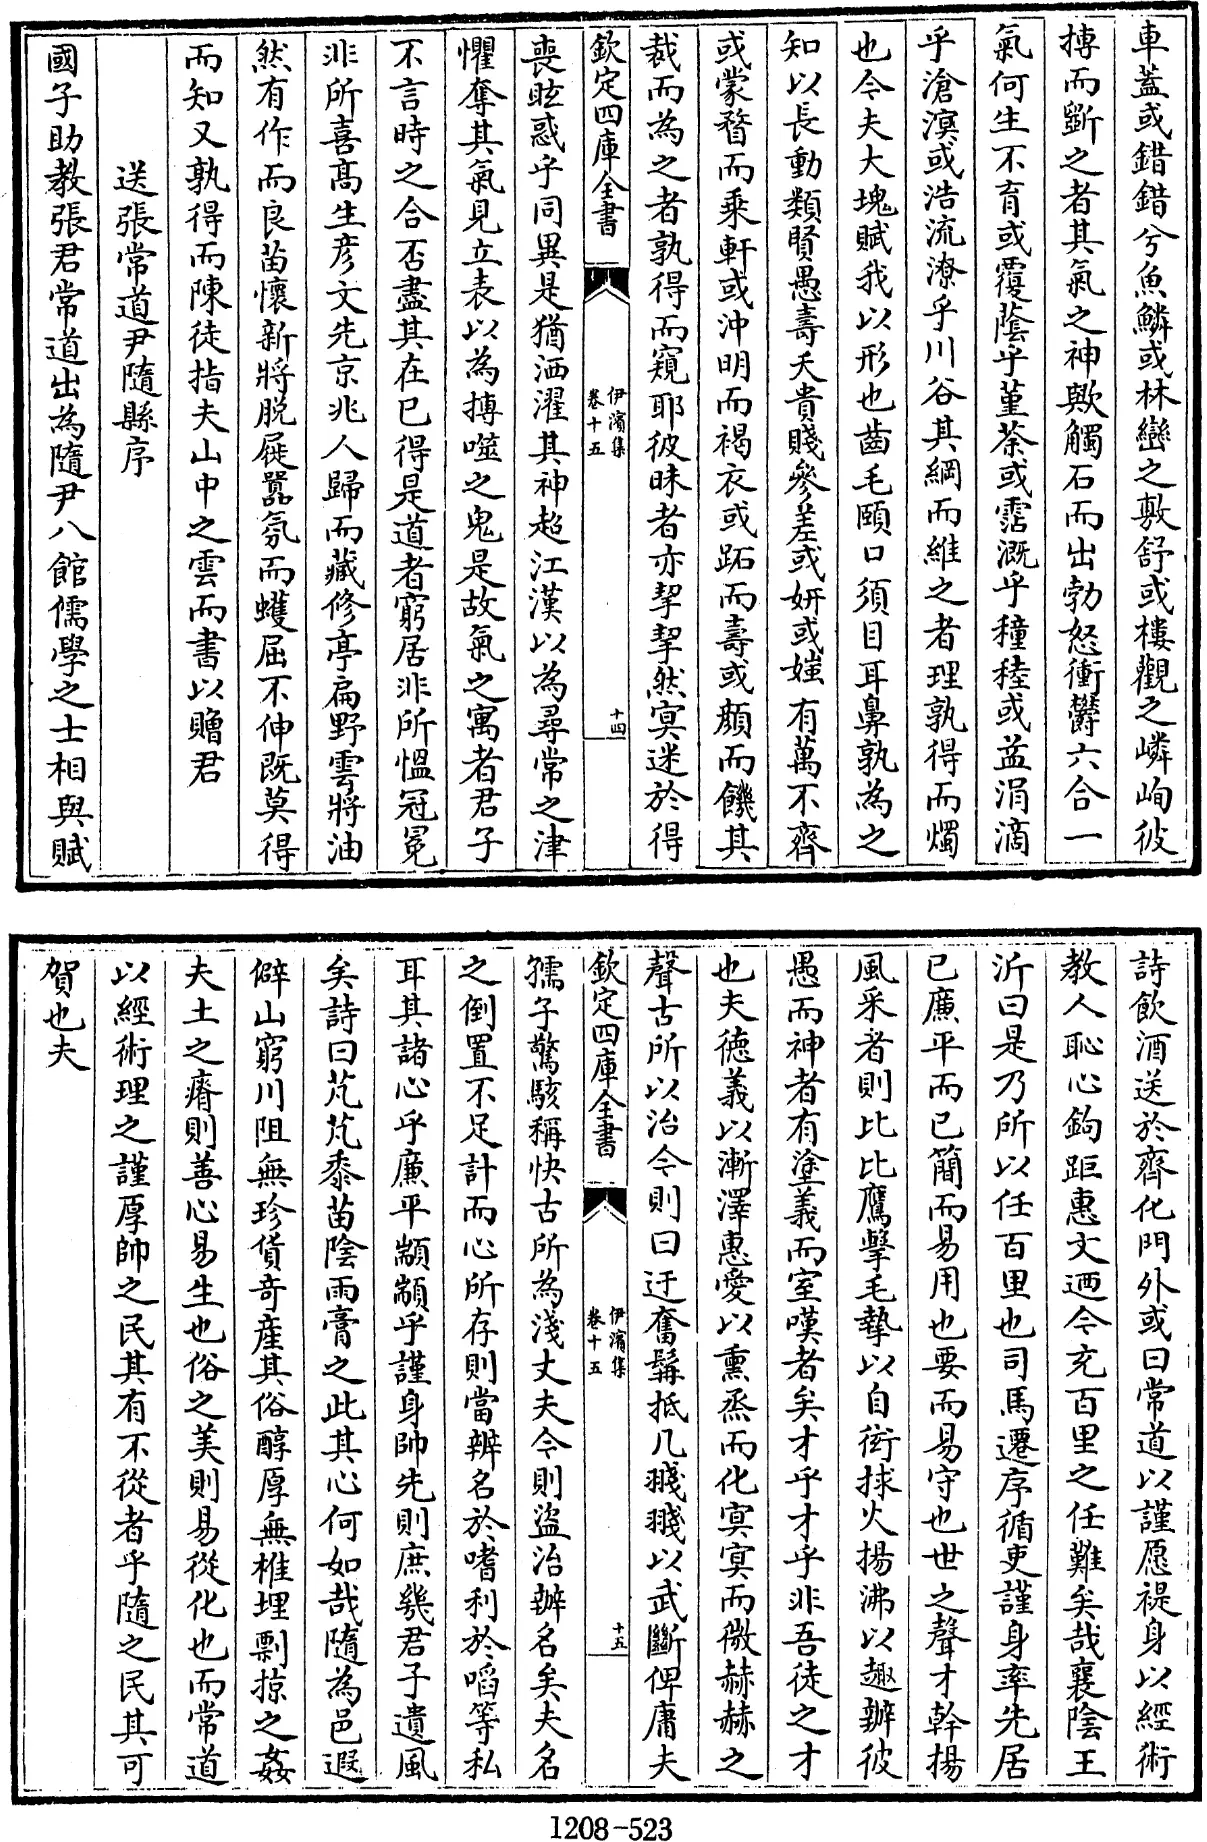 車蓋或錯錯兮魚鱗或林巒之敷舒或樓觀之嶙峋彼
摶而斵之者其氣之神歟觸石而出勃怒衝欝六合一
氣何生不育或覆蔭乎堇荼或霑溉乎穜稑或益涓滴
乎滄溟或浩流潦乎川谷其綱而維之者理孰得而燭
也今夫大塊賦我以形也齒毛頤口須目耳鼻孰為之
知以長動類賢愚壽夭貴賤參差或妍或媸有萬不齊
或蒙瞀而乘軒或沖明而褐衣或跖而壽或顔而饑其
裁而為之者孰得而窺耶彼昧者亦挈挈然寅迷於得
欽定四庫全書
伊濱集
卷十五
十四
喪眩惑乎同異是猶洒濯其神超江漢以為尋常之津
懼奪其氣見立表以為摶噬之鬼是故氣之寓者君子
不言時之合否盡其在已得是道者窮居非所愠冠冕
非所喜髙生彦文先京兆人歸而藏修亭扁野雲將油
然有作而良苗懷新將脱屣嚚氛而蠖屈不伸既莫得
而知又孰得而陳徒指夫山中之雲而書以贈君
送張常道尹隨縣序
國子助教張君常道出為隨尹八館儒學之士相與賦
詩飲酒送於齊化門外或曰常道以謹愿禔身以經術
教人恥心鉤距惠文迺今充百里之任難矣哉襄陰王
沂曰是乃所以任百里也司馬遷序循吏謹身率先居
已廉平而已簡而易用也要而易守也世之聲才幹揚
風采者則比比鷹擊毛摯以自衒捄火揚沸以趣辦彼
愚而神者有塗義而室嘆者矣才乎才乎非吾徒之才
也夫徳義以漸澤惠愛以熏烝而化寅寅而微赫赫之
聲古所以治今則曰迂奮髯抵几翪翪以武斷俾庸夫
欽定四庫全書
伊濱集
卷十五
十五
孺子驚駭稱快古所為淺丈夫今則盜治辦名矣夫名
之倒置不足計而心所存則當辨名於嗜利於㗖等私
耳其諸心乎廉平顓顓乎謹身帥先則庶幾君子遺風
矣詩曰芃芃黍苗陰雨膏之此其心何如哉隨為邑遐
僻山窮川阻無珍貨奇產其俗醇厚無椎埋剽掠之姦
夫土之瘠則善心易生也俗之美則易從化也而常道
以經術理之謹厚帥之民其有不從者乎隨之民其可
賀也夫
1208-523